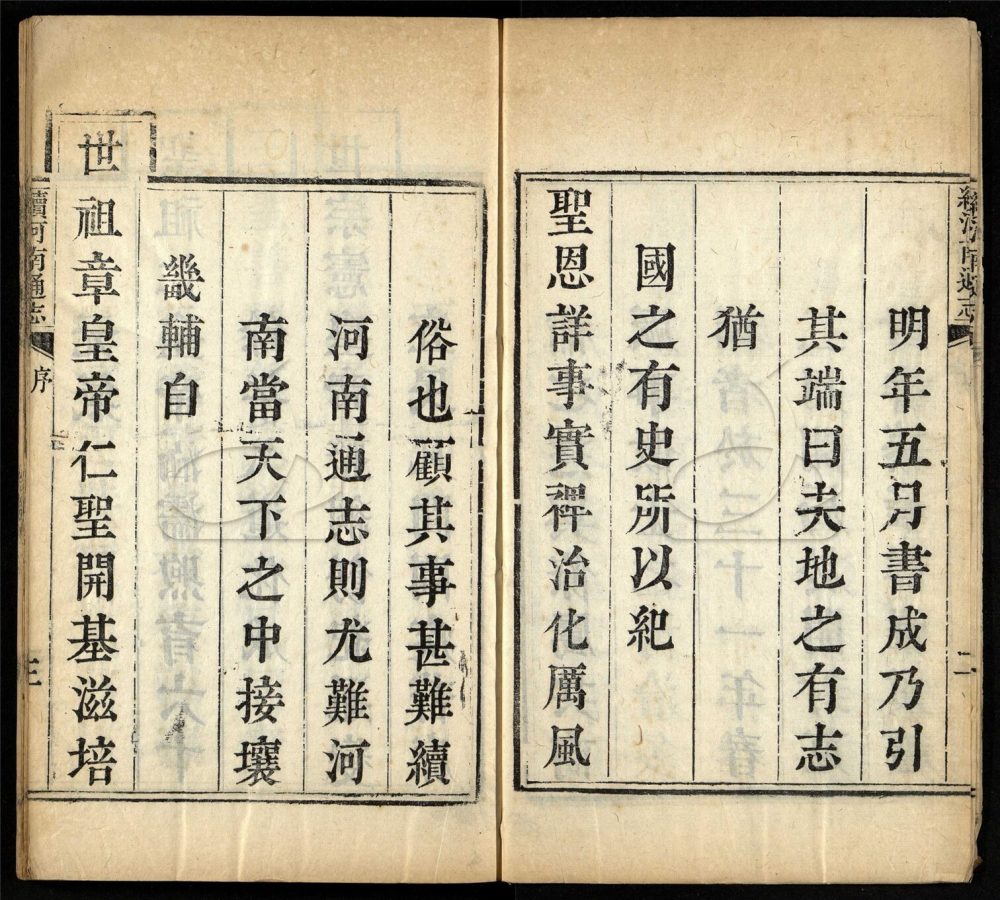 明年五月書成乃引
其端曰夫地之有志
猶
國之有史所以紀
聖恩詳事實裨治化厲風
二
俗也顧其事甚難續
河南通志則尤難河
南當天下之中接壤
畿輔自
世祖章皇帝仁聖開基滋培
續河南通志
序
三